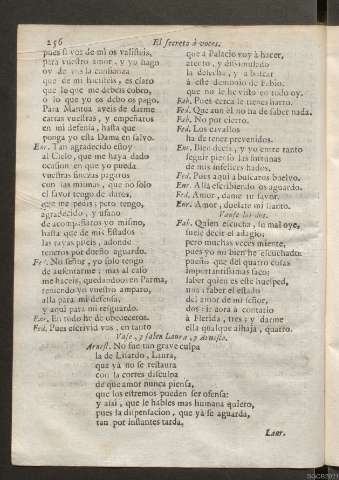 256 El secreto à voces.
pues si vos de mi os valisteis,
para vuestro amor, y yo hago
oy de vos la confianza
que de mi hicisteis, es claro
que lo que me debeis cobro,
ò lo que yo os debo os pago.
Para Mantua aveis de darme
cartas vuestras, y empeñaros
en mi defensa, hasta que
ponga esta Dama en salvo.
Enr. Tan agradecido estoy
al Cielo, que me haya dado
ocasion en que yo pueda
vuestras finezas pagaros
con las mismas, que no solo
el favor tengo de daros,
que me pedis; pero tengo,
agradecido, y ufano
de acompañaros yo mismo,
hasta que de mis Estados
las rayas piseis, adonde
teneros por dueño aguardo.
Fed. No señor, yo solo tengo
de ausentarme; mas al caso
me haceis, quedandoos en Parma,
teniendo yo vuestro amparo,
allà para mi defensa,
y aqui para mi resguardo.
Enr. En todo he de obedeceros.
Fed. Pues escrivid vos, en tanto
que à Palacio voy à hacer,
atento, y dissimulado
la deshecha, y à buscar
à este demonio de Fabio,
que no le he visto en todo oy.
Fab. Pues cerca le tienes harto.
Fed. Que aun èl no ha de saber nada.
Fab. No por cierto.
Fed. Los cavallos
ha de tener prevenidos.
Enr. Bien decis, y yo entre tanto
seguir pienso las fortunas
de mis infelices hados.
Fed. Pues aqui à buscaros buelvo.
Enr. Allà escribiendo os aguardo.
Fed. Amor, dame tu favor.
Enr. Amor, duelate mi llanto.
Vanse los dos.
Fab. Quien escucha, su mal oye,
suele decir el adagio;
pero muchas veces miente,
pues yo mi bien he escuchado:
puesto que del quatro cosas
importantissimas saco;
saber quien es este huesped,
una; saber el estado
del amor de mi señor,
dos; ir aora à contarlo
à Flerida, tres; y darme
ella qualque alhaja, quatro.
Vase, y salen Laura, y Arnesto.
Arnest. No fue tan grave culpa
la de Lisardo, Laura,
que yà no se restaura
con la cortès disculpa
de que amor nunca piensa,
que los estremos pueden ser ofensa:
y assi, que le hables mas humana quiero,
pues la dispensacion, que yà se aguarda,
tan por instantes tarda,
Laur.